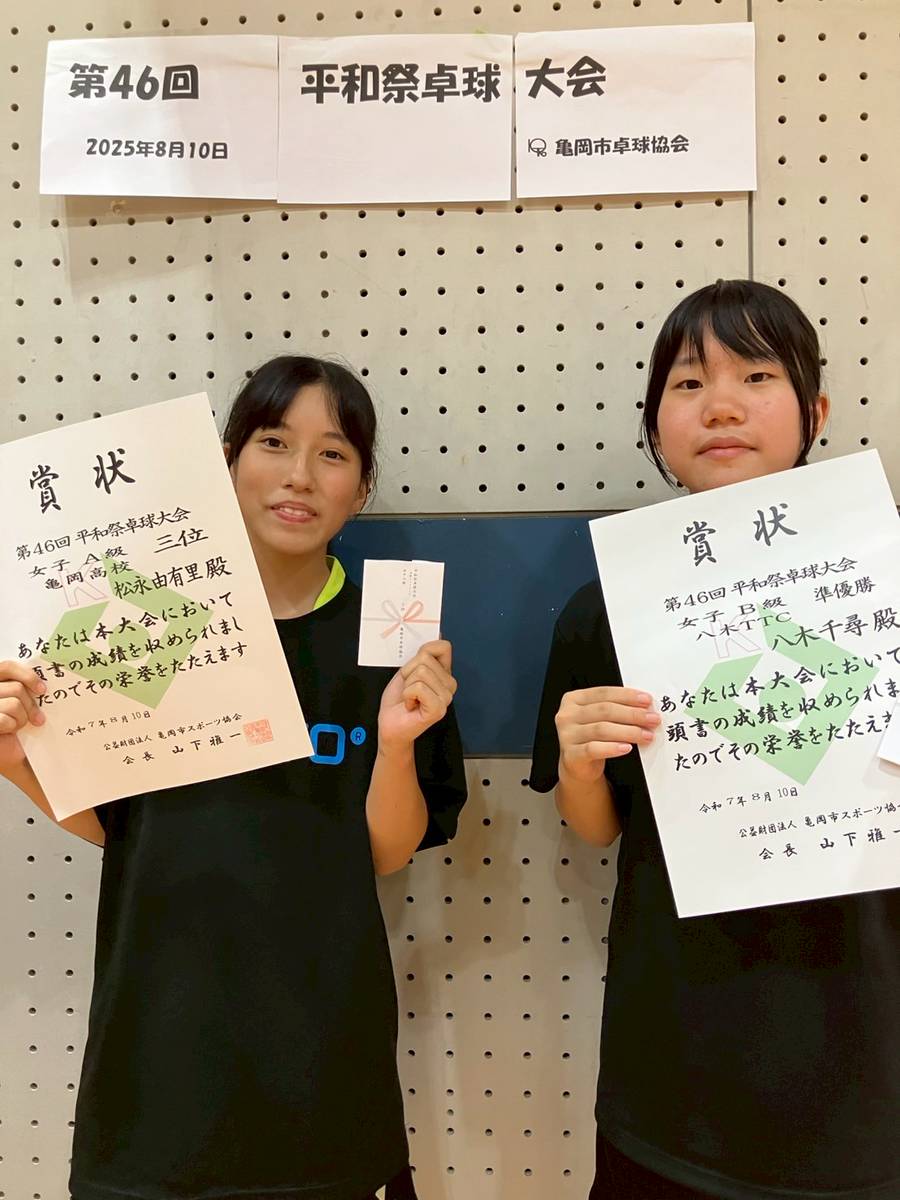 第46回 平和祭卓球 大会
2025年8月10日
亀岡市卓球協会
賞状
第46回 平和祭卓球大会
女子 A級 三位
亀岡高校 松永由有里殿
あなたは本大会において
頭書の成績を収められまし
たのでその栄誉をたたえます
令和7年8月10日
公益財団法人 亀岡市スポーツ協会
会長 山下雅一
賞状
第46回 平和祭卓球大会
女子 B級 準優勝
八木TTC 八木千尋殿
あなたは本大会において
頭書の成績を収められま
たのでその栄誉をたたえま
令和7年8月10日
公益財団法人 亀岡市スポーツ協
会長 山下雅一